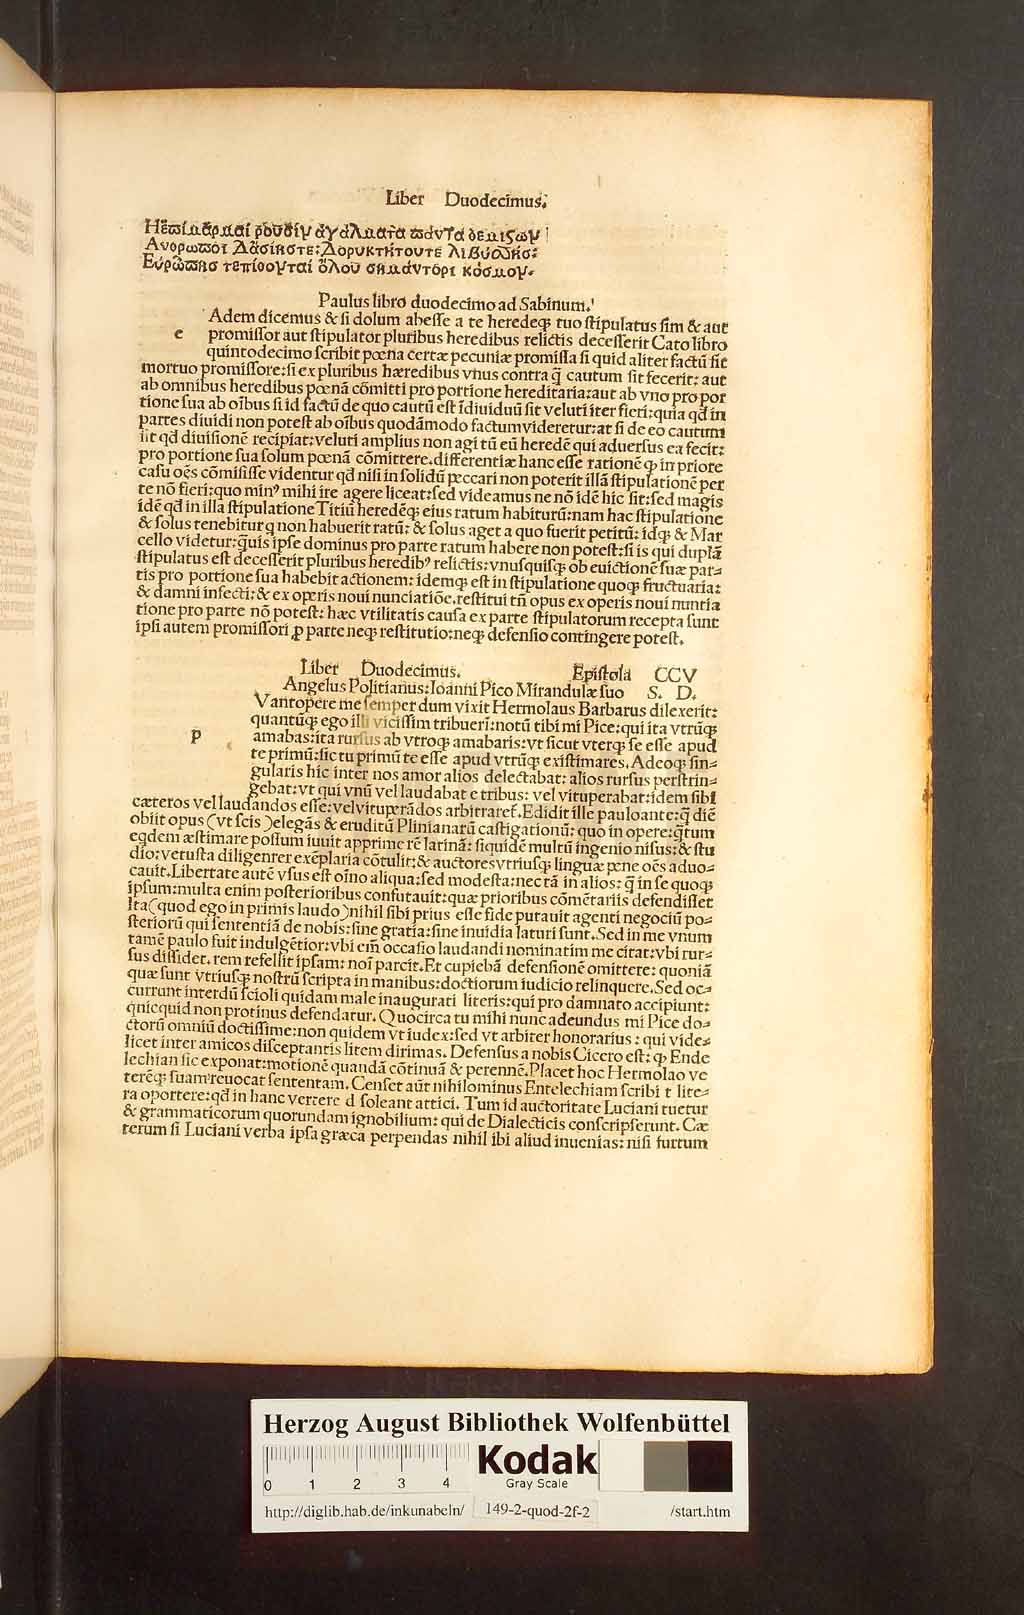 Liber Duodecimus.
Ανθρωποι Δασιηστε: Δορυκτητουτε λιβυωησ:
Ευρωπησ τεπιθουται ὅλου σημαντορι κόσμου.
Paulus libro duodecimo ad Sabinum.
Adem dicemus & si dolum abesse a te heredeqꝫ tuo stipulatus sim & aut
e promissor aut stipulator pluribus heredibus relictis decesserit Cato libro
quintodecimo scribit pœna certæ pecuniæ promissa si quid aliter factũ sit
mortuo promissore: si ex pluribus hæredibus vnus contra q̃ cautum sit fecerit: aut
ab omnibus heredibus pœnã cõmitti pro portione hereditaria: aut ab vno pro por
tione sua ab oĩbus si id factũ de quo cautũ est ĩdiuiduũ sit veluti iter fieri: quia qđ in
partes diuidi non potest ab oĩbus quodãmodo factum videretur: at si de eo cautum
sit qđ diuisionẽ recipiat: veluti amplius non agi tũ eũ heredẽ qui aduersus ea fecit:
pro portione sua solum pœnã cõmittere. differentiæ hanc esse rationẽ ꝙ in priore
casu oẽs cõmisisse videntur qđ nisi in solidũ peccari non poterit illã stipulationẽ per
te nõ fieri: quo minꝰ mihi ire agere liceat: sed videamus ne nõ idẽ hic sit: sed magis
idẽ qđ in illa stipulatione Titiũ heredẽqꝫ eius ratum habiturũ: nam hac stipulatione
& solus tenebitur q non habuerit ratũ: & solus aget a quo fuerit petitũ: idqꝫ & Mar
cello videtur: q̃uis ipse dominus pro parte ratum habere non potest: si is qui duplã
stipulatus est decesserit pluribus heredibꝰ relictis: vnusquisqꝫ ob euictionẽ suæ par=
tis pro portione sua habebit actionem: idemqꝫ est in stipulatione quoqꝫ fructuaria:
& damni infecti: & ex operis noui nunciatiõe. restitui tñ opus ex operis noui nuntia
tione pro parte nõ potest: hæc vtilitatis causa ex parte stipulatorum recepta sunt
ipsi autem promissori ꝓ parte neqꝫ restitutio: neqꝫ defensio contingere potest.
Liber Duodecimus. Epistola CCV
Angelus Politianus: Ioanni Pico Mirandulæ suo S. D.
Vantopere me semper dum vixit Hermolaus Barbarus dilexerit:
quantũqꝫ ego illi vicissim tribuerĩ: notũ tibi mi Pice: qui ita vtrũqꝫ
p amabas: ita rursus ab vtroqꝫ amabaris: vt sicut vterqꝫ se esse apud
te primũ: sic tu primũ te esse apud vtrũqꝫ existimares. Adeoqꝫ sin=
gularis hic inter nos amor alios delectabat: alios rursus perstrin=
gebat: vt qui vnũ vel laudabat e tribus: vel vituperabat: idem sibi
cæteros vel laudandos esse: vel vituperãdos arbitraret. Edidit ille paulo ante: q̃ diẽ
obiit opus (vt scis) elegãs & eruditũ Plinianarũ castigationũ: quo in opere: q̃tum
eqdem æstimare possum iuuit apprime rẽ latinã: siquidẽ multũ ingenio nisus: & stu
dio: vetusta diligenrer exẽplaria cõtulit: & auctores vtriusqꝫ linguæ pene oẽs aduo=
cauit. Libertate autẽ vsus est oĩno aliqua: sed modesta: nec tã in alios: q̃ in se quoqꝫ
ipsum: multa enim posterioribus confutauit: quæ prioribus cõmẽtariis defendisset
Ita (quod ego in primis laudo) nihil sibi prius esse fide putauit agenti negociũ po=
steriorũ qui sententiã de nobis: sine gratia: sine inuidia laturi sunt. Sed in me vnum
tamẽ paulo fuit indulgẽtior: vbi em̃ occasio laudandi nominatim me citat: vbi rur=
sus dissidet. rem refellit ipsam: noĩ parcit. Et cupiebã defensionẽ omittere: quoniã
quæ sunt vtriusqꝫ nostrũ scripta in manibus: doctiorum iudicio relinquere. Sed oc=
currunt interdũ scioli quidam male inaugurati literis: qui pro damnato accipiunt:
qnicquid non protinus defendatur. Quocirca tu mihi nunc adeundus mi Pice do=
ctorũ omniũ doctissime: non quidem vt iudex: sed vt arbiter honorarius: qui vide=
licet inter amicos disceptantis litem dirimas. Defensus a nobis Cicero est: ꝙ Ende
lechian sic exponat: motionẽ quandã cõtinuã & perennẽ. Placet hoc Hermolao ve
terẽqꝫ suam reuocat sententam. Censet aũt nihilominus Entelechiam scribi t lite=
ra oportere: qđ in hanc vertere d soleant attici. Tum id auctoritate Luciani tuetur
& grammaticorum quorundam ignobilium: qui de Dialecticis conscripserunt. Cæ
terum si Luciani verba ipsa græca perpendas nihil ibi aliud inuenias: nisi furtum
Herzog August Bibliothek Wolfenbüttel
0 1 2 3 4
Kodak
Gray Scale
http://diglib.hab.de/inkunabeln/ 149-2-quod-2f-2 /start.htm